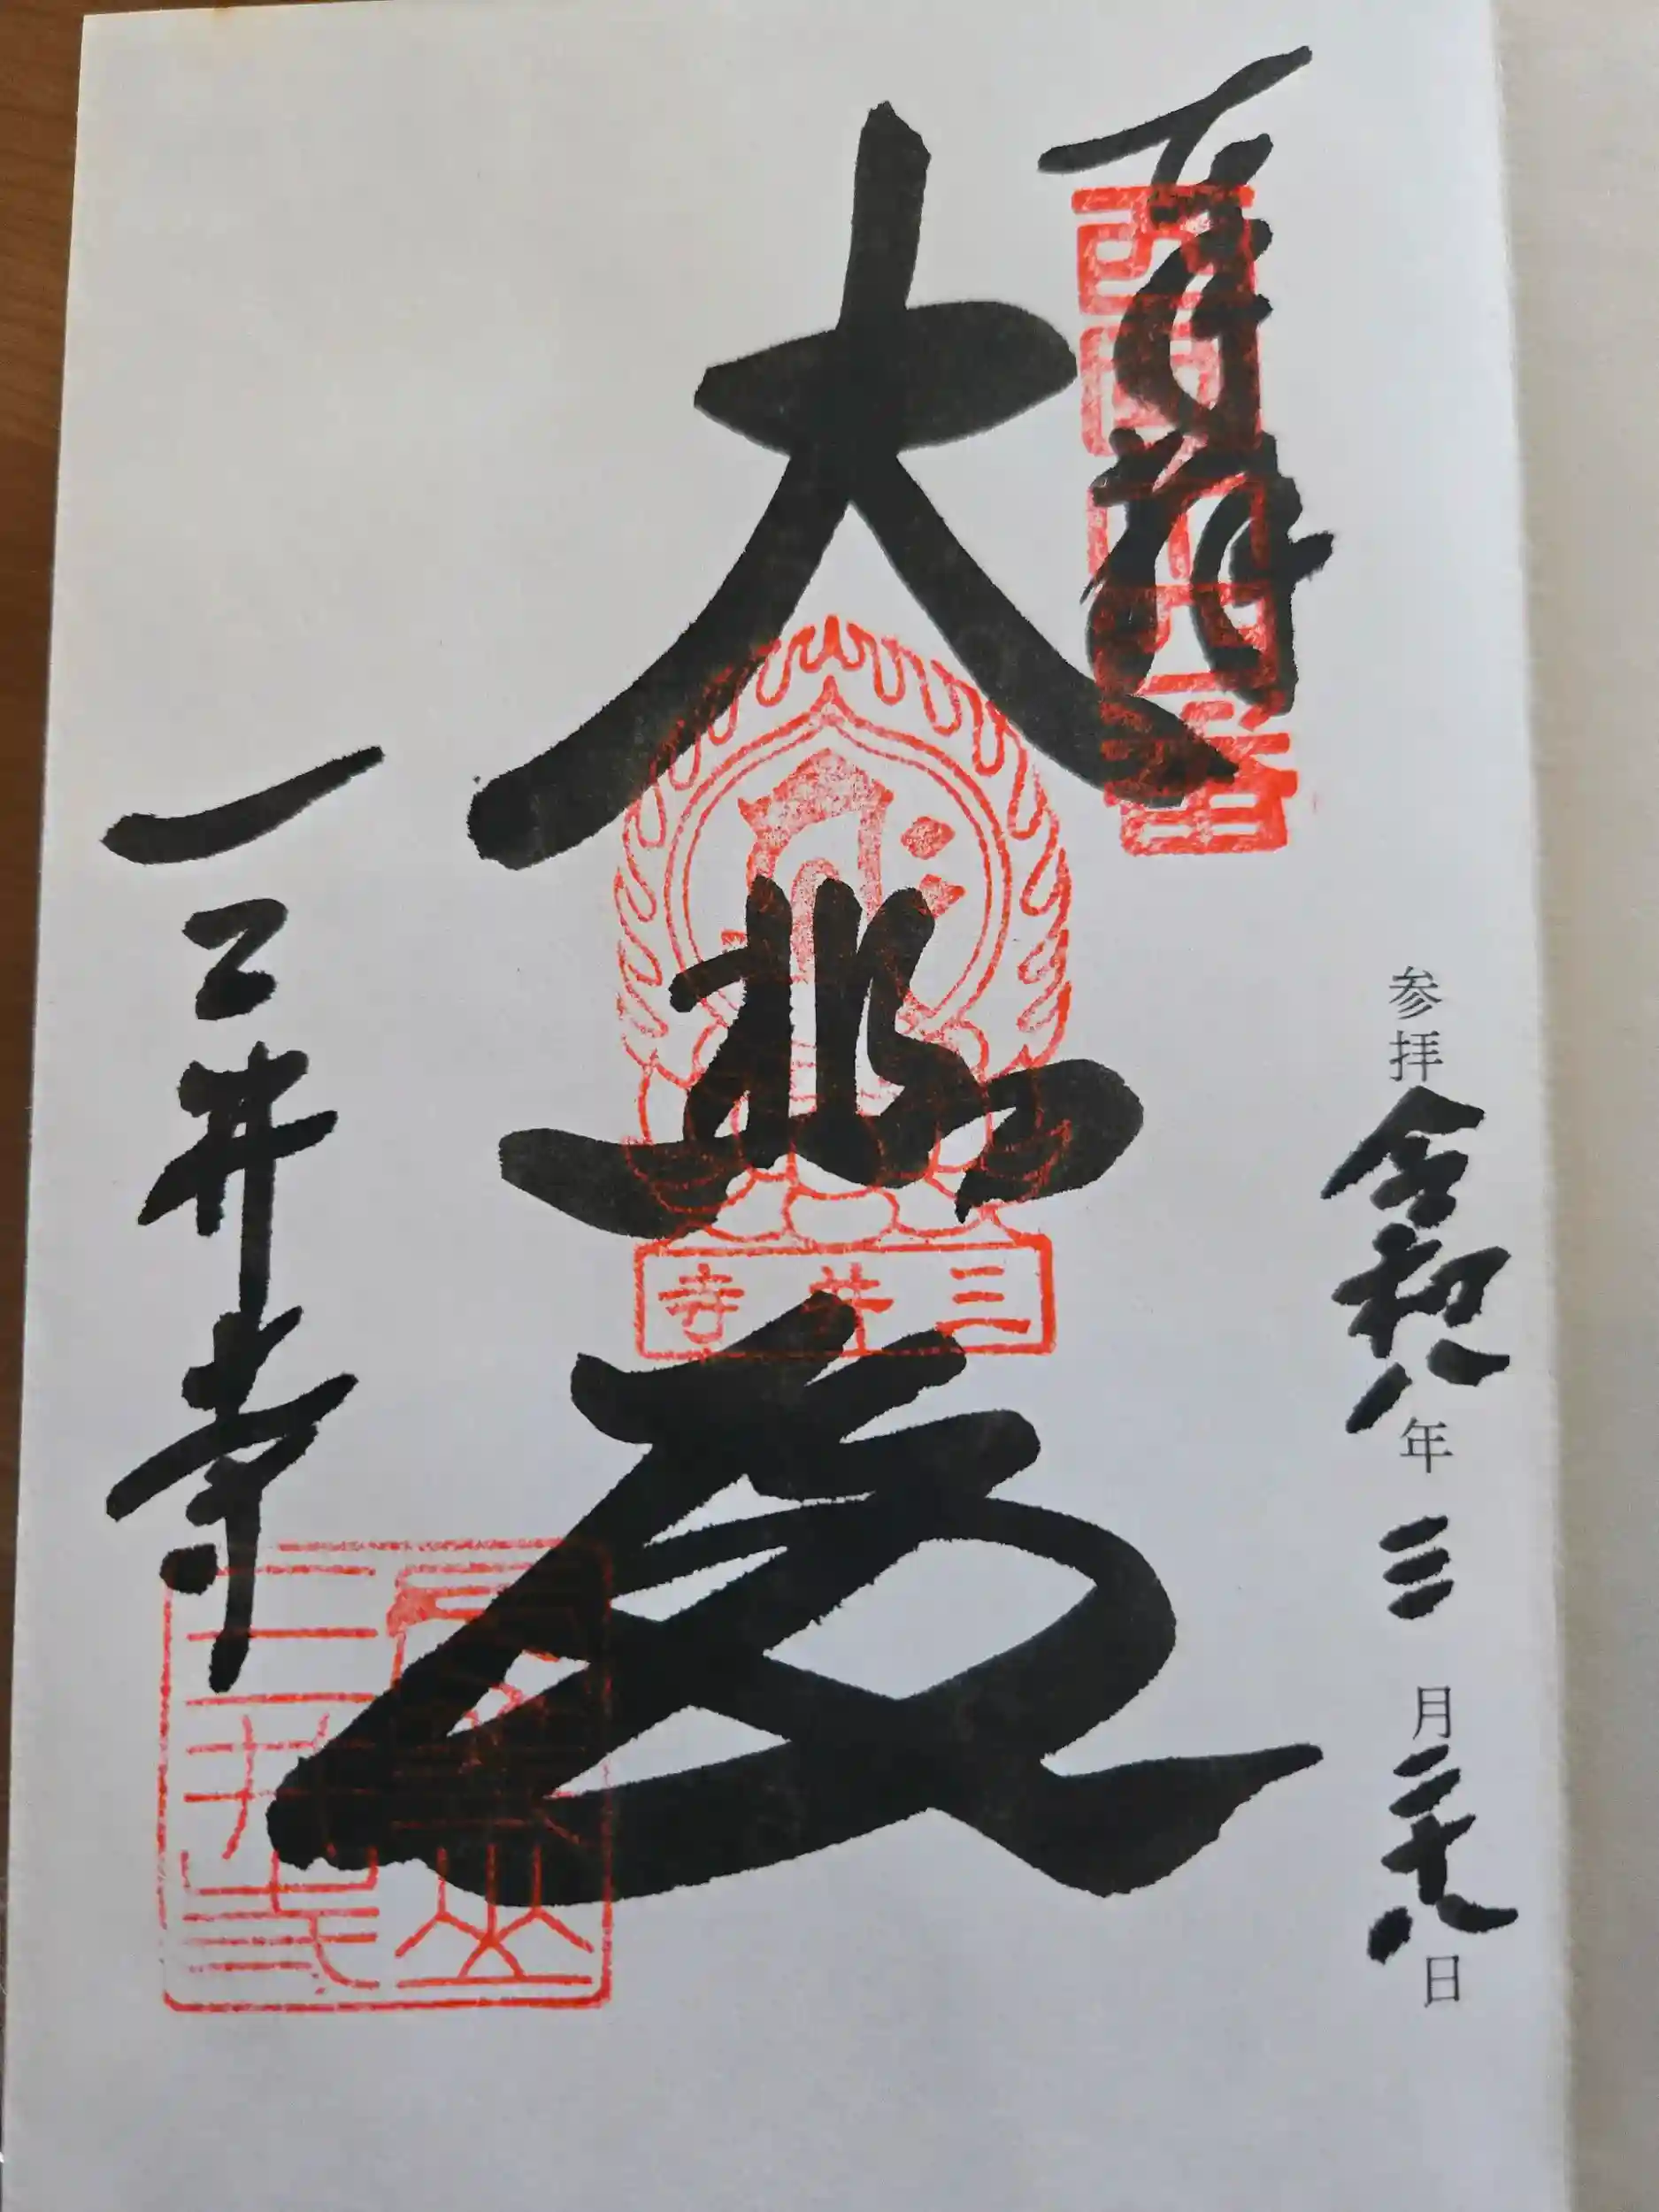 参拝令和八年三月二十八日
奉拝
大悲殿
三井寺
三井寺
三井寺